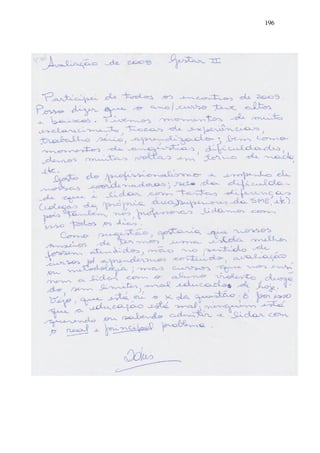 196
Avaliação de 2009 Gestar II
Participei de todos os encontros de 2009.
Posso dizer que o ano/curso teve altos
e baixos. Tivemos momentos de muito
esclarecimento, trocas de experiências,
trabalho sério, aprendizado; bem como
momentos de angústias, dificuldades,
demos muitas voltas em torno de nada
etc.
Gosto do profissionalismo e empenho de
nossas coordenadoras; sei da dificulda-
de que é lidar com tantas diferenças
(colegas da própria área, supervisores da SME etc).
pois também, nós professoras lidamos com
isso todos os dias.
Como sugestão, gostaria que nossos
anseios de termos uma escola melhor
fossem atendidos, não no sentido de
cursos p/ aprendermos conteúdo, avaliação
ou metodologia; mas cursos que nos ensi
nem a lidar com o aluno violento, droga
do, sem limites, mal educados de hoje.
Vejo, que está aí o X da questão. É por isso
que a educação está mal; ninguém está
querendo ou sabendo admitir e lidar com
o real e principal problema.